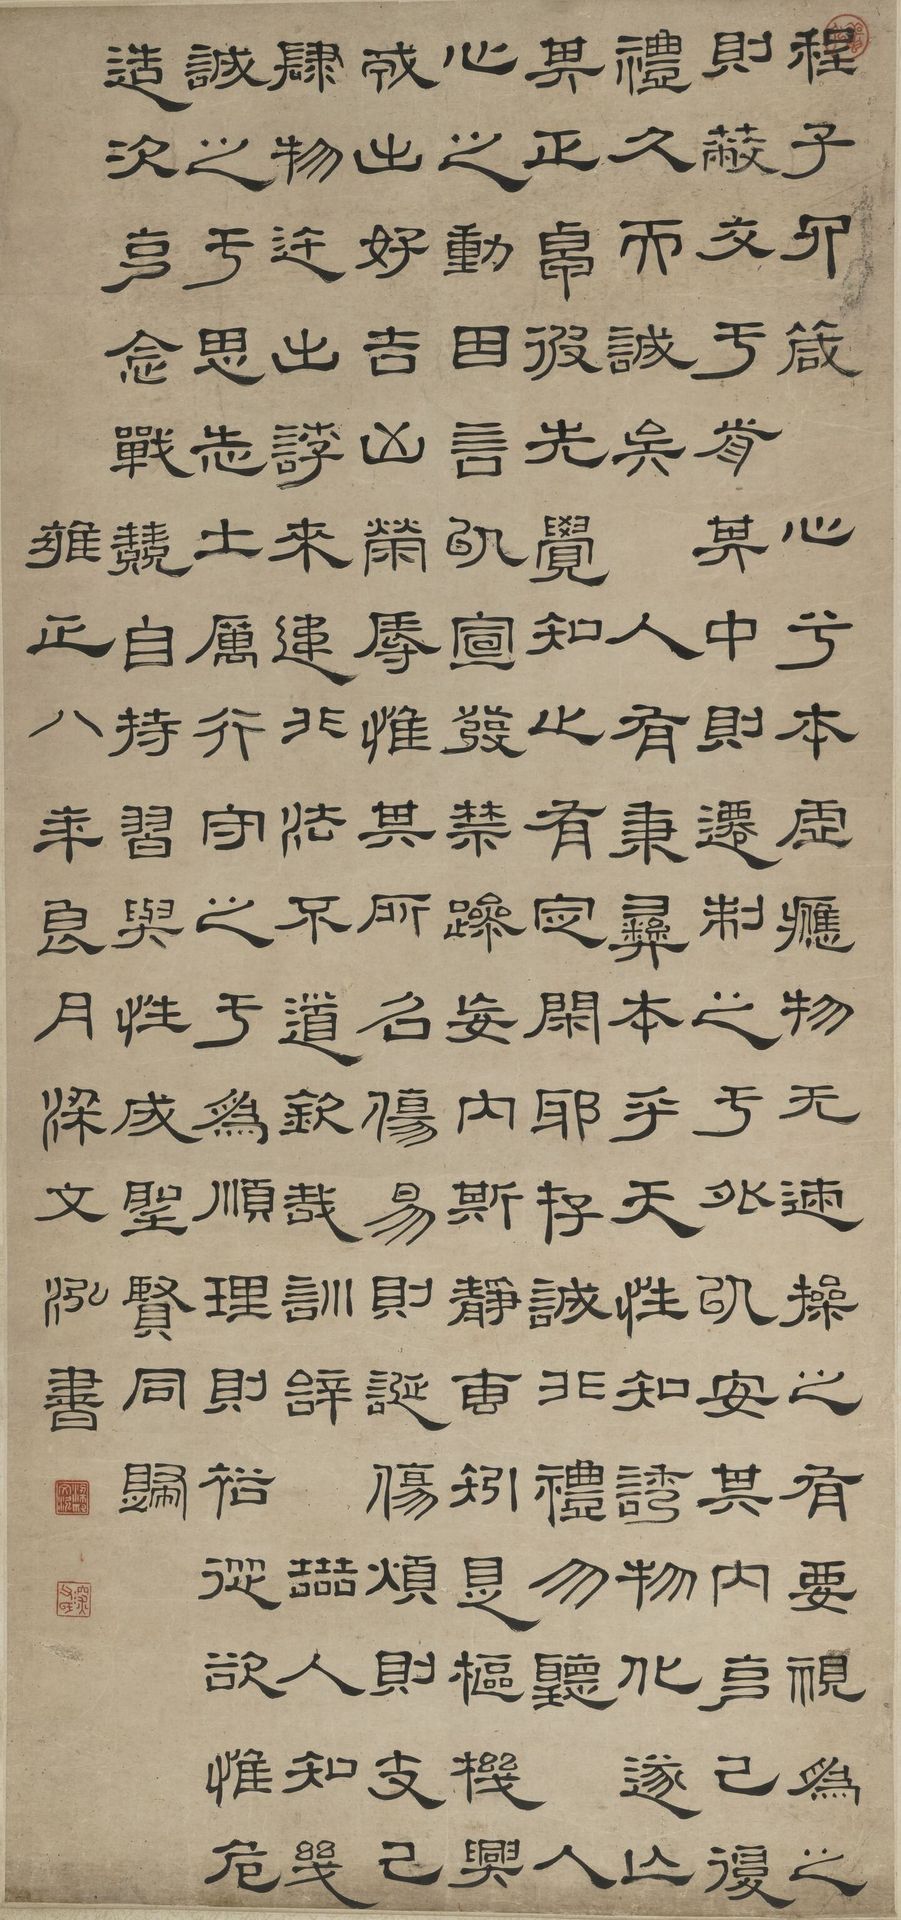 程子四箴 心兮本虛應物无迹操之有要視為之
則蔽交于前 其中則遷制之于外以安其内克己復
禮久而誠矣 人有秉彝本乎天性知誘物化遂亡
其正卓彼先覺知止有定閑邪存誠非禮勿聽 人
心之動因言以宣發禁躁妄内斯靜專矧是樞機興
戎出好吉凶榮辱惟其所召傷易則誕傷煩則支己
肆物迕出誖來違非法不道欽哉訓辭 喆人知幾
誠之于思志士厲行守之于為順理則裕從欲惟危
造次克念戰兢自持習與性成聖賢同歸
雍正八年良月梁文泓書